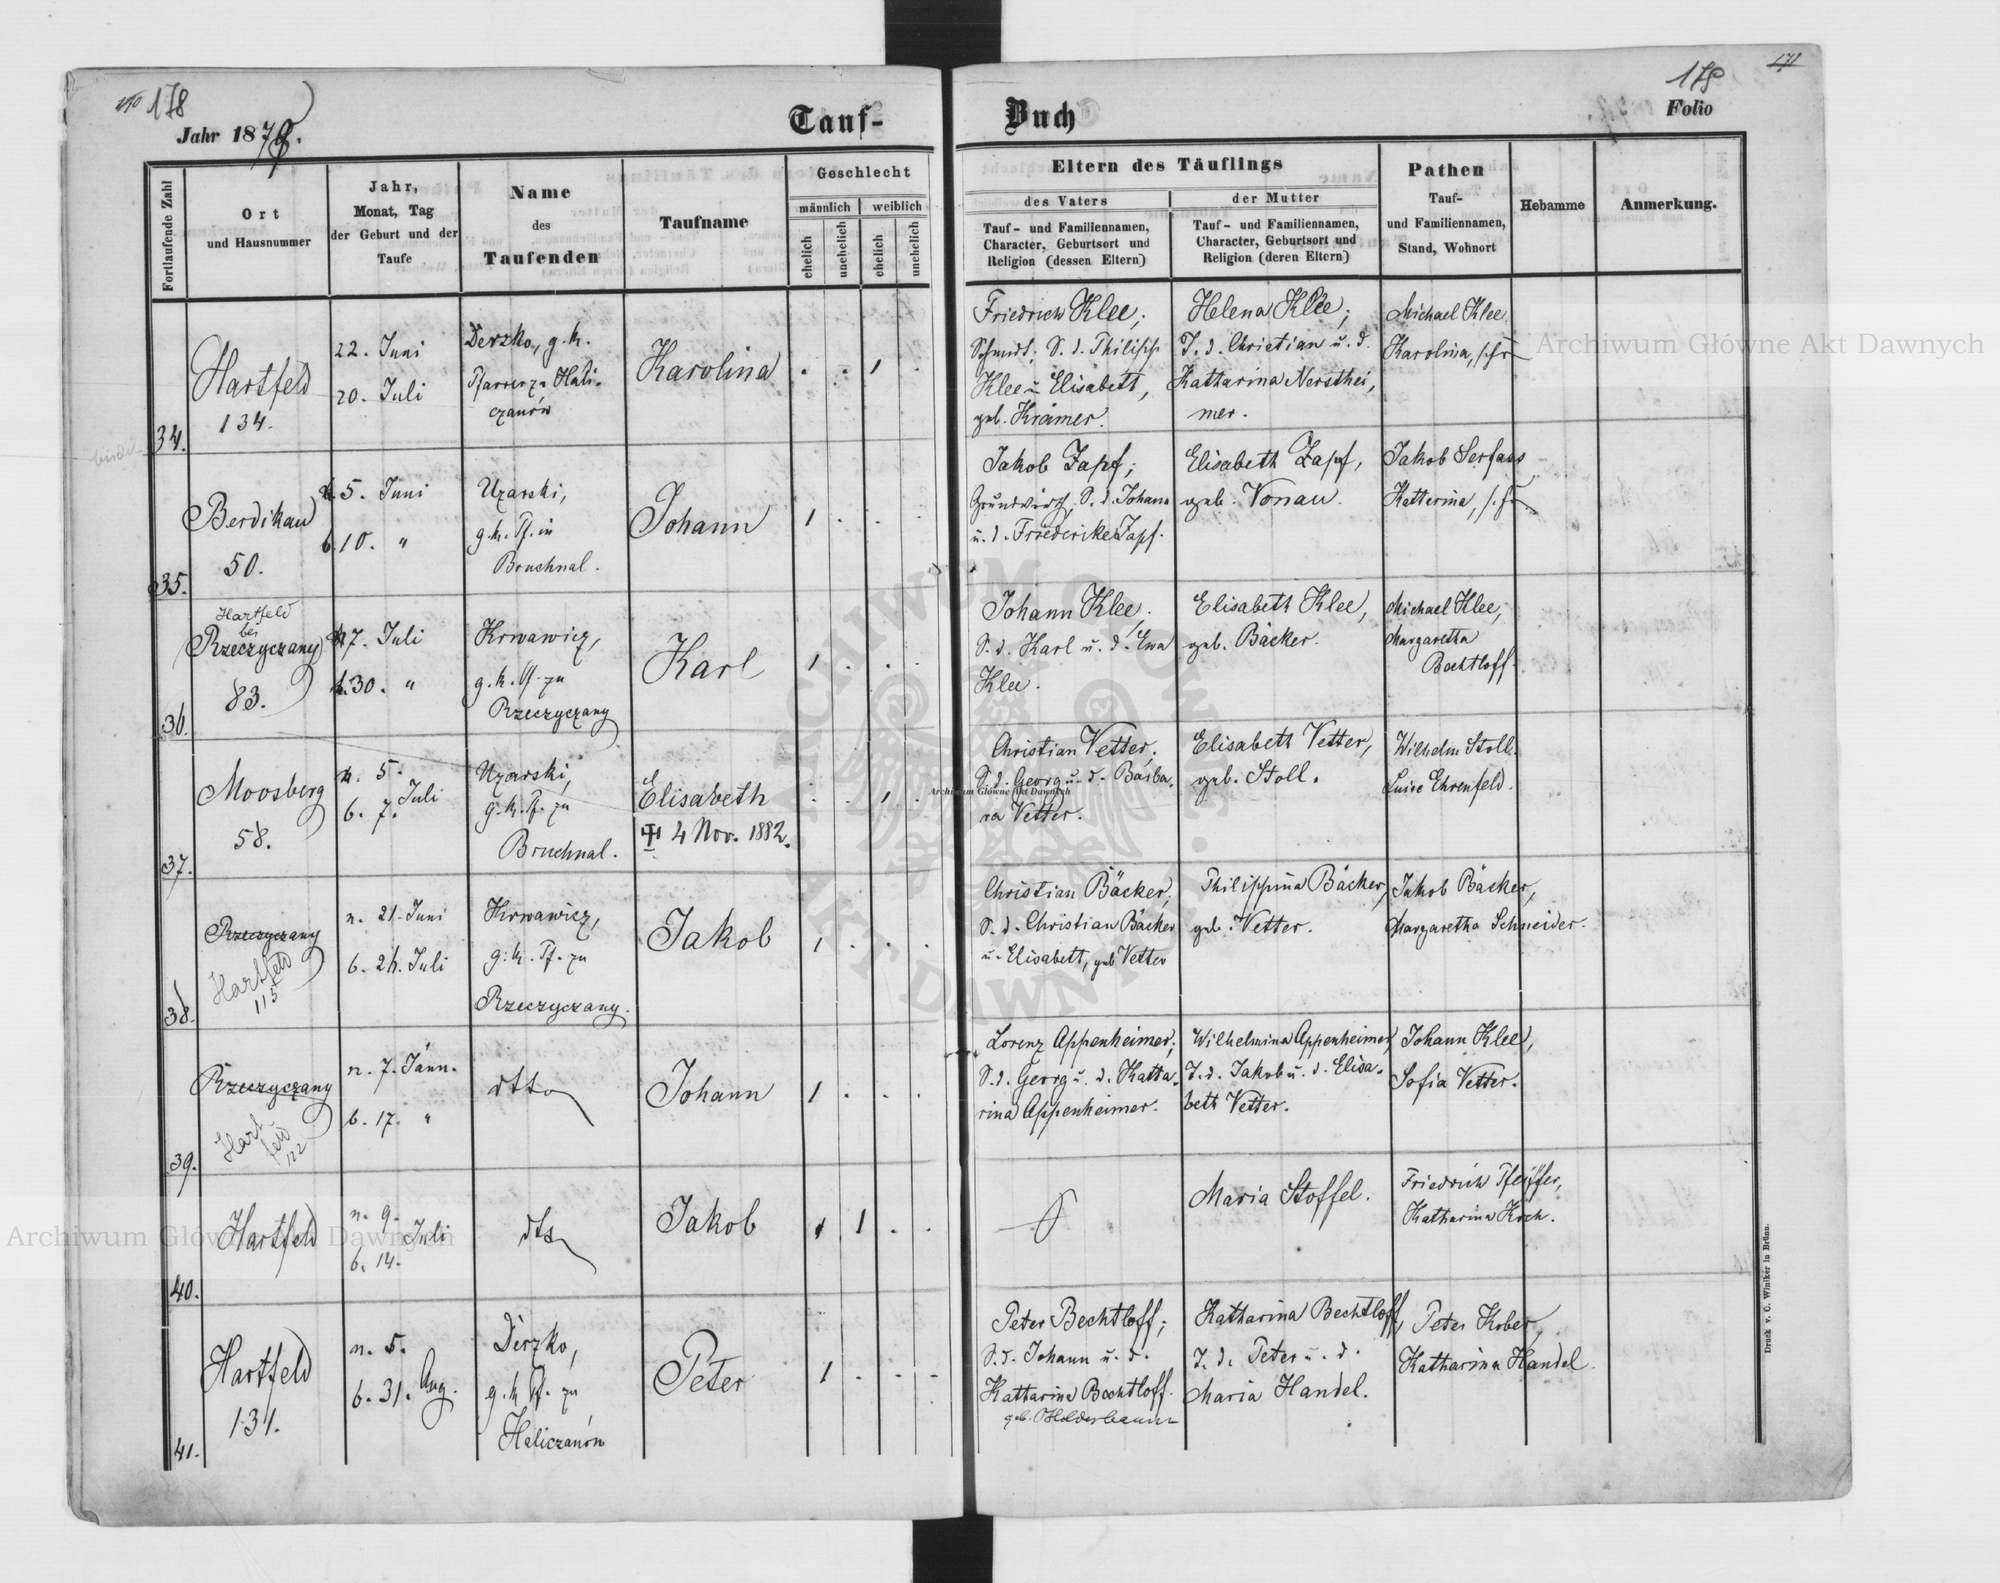 178
Jahr 1879.
Tauf-
Buch
178
171
Folio
Fortlaufende Zahl
Ort
und Hausnummer
Jahr,
Monat, Tag
der Geburt und der
Taufe
Name
des
Taufenden
Taufname
Geschlecht
männlich
weiblich
ehelich
unehelich
ehelich
unehelich
Eltern des Täuflings
des Vaters
Tauf- und Familiennamen,
Character, Geburtsort und
Religion (dessen Eltern)
der Mutter
Tauf- und Familiennamen,
Character, Geburtsort und
Religion (deren Eltern)
Pathen
Tauf-
und Familiennamen,
Stand, Wohnort
Hebamme
Anmerkung.
34.
Hartfeld
134.
22. Juni
20. Juli
Derzko, g. k.
Pfarrer z. Hali-
czanów
Karolina
. . 1 .
Friedrich Klee;
Schmidt; S. d. Philipp
Klee u. Elisabeth,
geb. Krämer.
Helena Klee;
T. d. Christian u. d.
Katharina Nersthei,
mer.
Michael Klee
Karolina,
35.
Berdikau
50.
5. Juni
b. 10. "
Uzarski,
g. k. Pf. in
Bruchnal.
Johann
1 . . .
Jakob Zapf;
Grundwirth; S. d. Johann
u. d. Friederike Zapf.
Elisabeth Zapf,
geb. Vonau.
Jakob Serfass
Katterina,
36.
Hartfeld
bei
Rzeczyczany
83.
n. 7. Juli
b. 30. "
Krwawicz,
g. k. Pf. zu
Rzeczyczany
Karl
1 . . .
Johann Klee,
S. d. Karl u. d. Ewa
Klee.
Elisabeth Klee,
geb. Bäcker.
Michael Klee,
Margaretha
Bechtloff.
37.
Moosberg
58.
n. 5.
b. 7. Juli
Uzarski,
g. k. Pf. zu
Bruchnal.
Elisabeth
4 Nov. 1882.
. . 1 .
Christian Vetter,
S. d. Georg u. d. Barba,
ra Vetter.
Elisabeth Vetter,
geb. Stoll.
Wilhelm Stoll.
Luise Ehrenfeld.
38.
Rzeczyczany
Hartfeld
115
n. 21. Juni
b. 26. Juli
Krwawicz,
g. k. Pf. zu
Rzeczyczany.
Jakob
1 . . .
Christian Bäcker,
S. d. Christian Bäcker
u. Elisabeth, geb Vetter
Philippina Bäcker,
geb. Vetter.
Jakob Bäcker,
Margaretha Schneider.
39.
Rzeczyczany
Hart-
feld
122
n. 7. Jänn.
b. 17. "
dtto
Johann
1 . . .
Lorenz Appenheimer;
S. d. Georg u. d. Katta,
rina Appenheimer.
Wilhelmina Appenheimer,
T. d. Jakob u. d. Elisa,
beth Vetter.
Johann Klee,
Sofia Vetter.
40.
Hartfeld
n. 9.
b. 14. Juli
dto
Jakob
1 . .
Maria Stoffel.
Friedrich Pfeiffer,
Katharina Koch.
41.
Hartfeld
131.
n. 5.
b. 31. Aug.
Derzko,
g. k. Pf. zu
Haliczanów
Peter
1 . . .
Peter Bechtloff;
S. d. Johann u. d.
Katharina Bechtloff.
geb. Holderbaum
Katharina Bechtloff,
T. d. Peter u. d.
Maria Handel.
Peter Kober,
Katharina Handel.
Druck v. C. Winiker in Brünn.
Archiwum Główne Akt Dawnych
Archiwum Główne Akt Dawnych
Archiwum Główne Akt Dawnych
ARCHIWUM GŁÓWNE AKT DAWNYCH